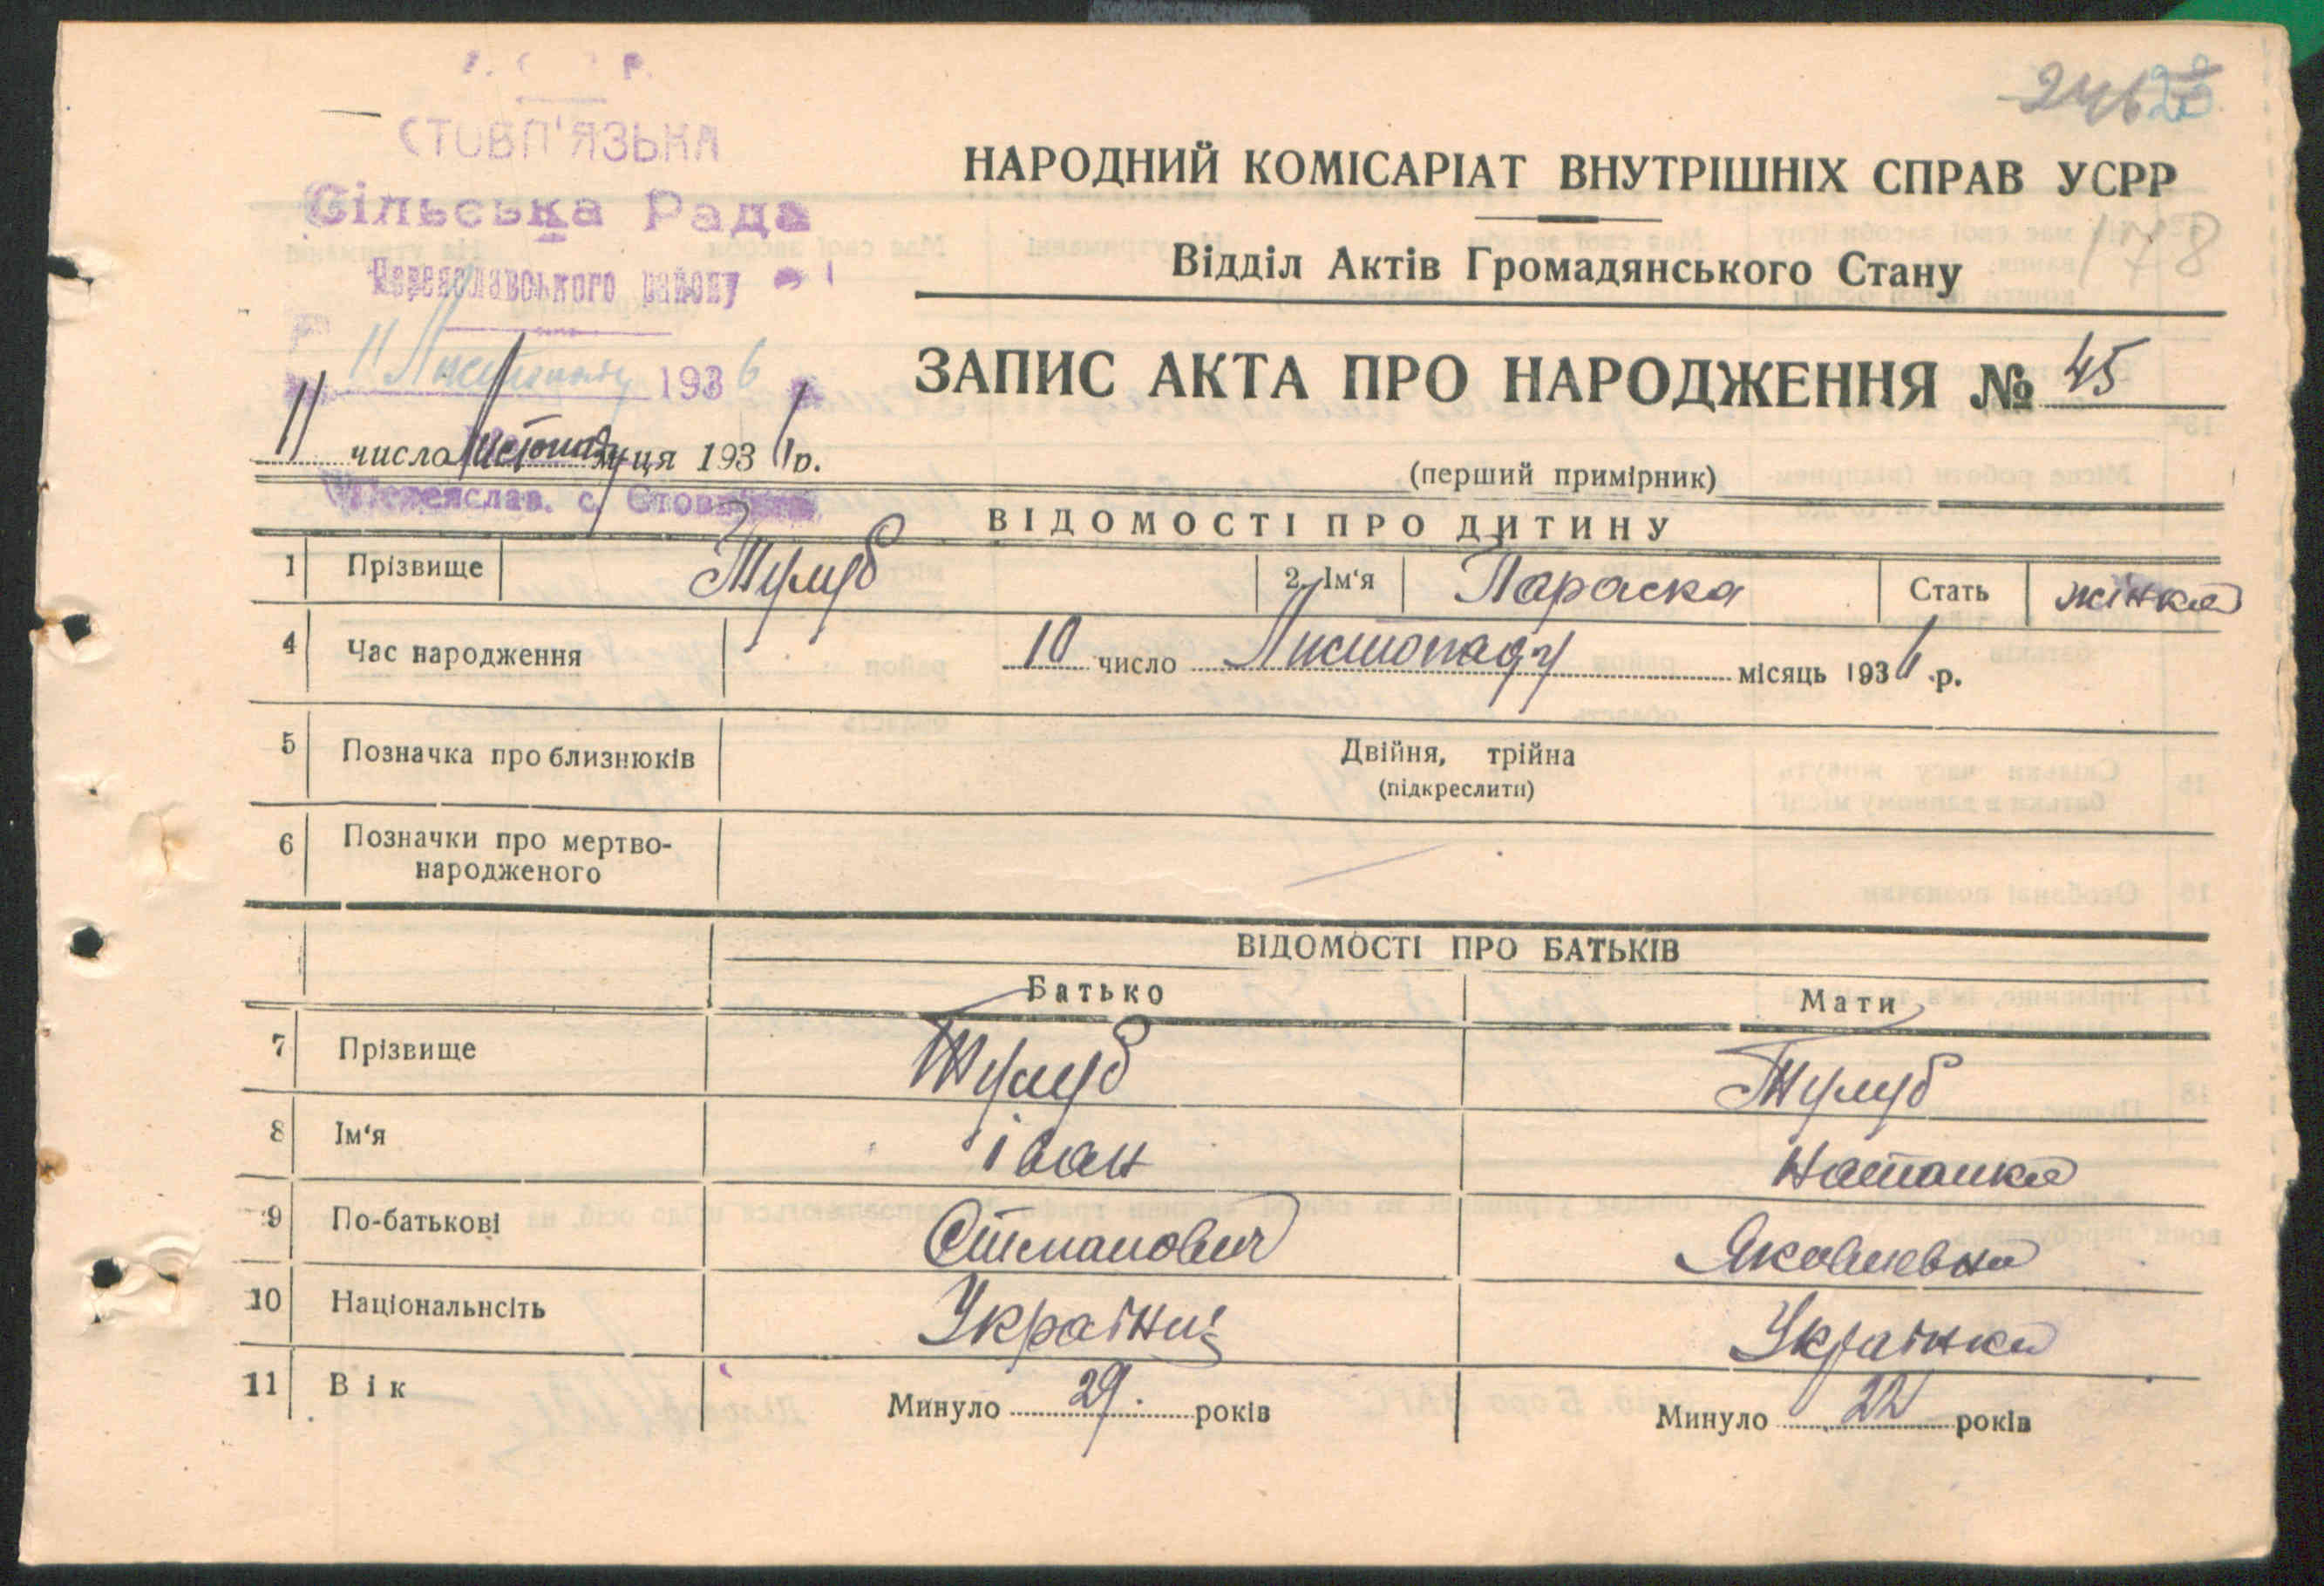 СТОВП'ЯЗЬКА
Сільська Рада
Переяславського району
11 Листопаду 1936
11 число Листопаду м-ця 1936 р.
Переяслав. с.
246 23
178
НАРОДНИЙ КОМІСАРІАТ ВНУТРІШНІХ СПРАВ УСРР
Відділ Актів Громадянського Стану
ЗАПИС АКТА ПРО НАРОДЖЕННЯ № 45
(перший примірник)
ВІДОМОСТІ ПРО ДИТИНУ
1 Прізвище Тулуб 2. Ім'я Параска Стать жінка
4 Час народження 10 число Листопаду місяць 1936 р.
5 Позначка про близнюків Двійня, трійна
(підкреслити)
6 Позначки про мертво-
народженого
ВІДОМОСТІ ПРО БАТЬКІВ
Батько Мати
7 Прізвище Тулуб Тулуб
8 Ім'я Іван Наталка
9 По-батькові Степанович Яковлевна
10 Національнсіть Українец Українка
11 Вік Минуло 29. років Минуло 22 років